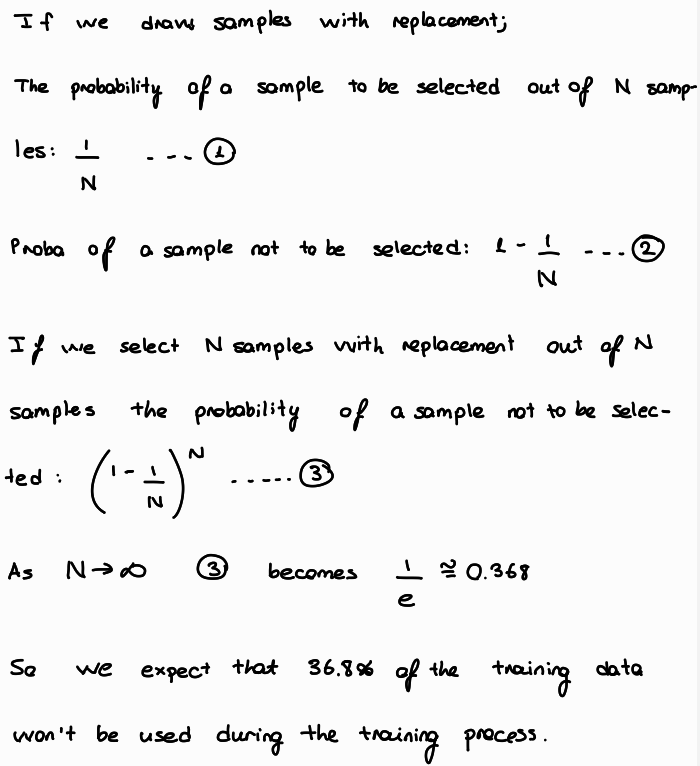 If we draw samples with replacement;
The probability of a sample to be selected out of N samp-
les: 1/N --- ①
Proba of a sample not to be selected: 1 - 1/N --- ②
If we select N samples with replacement out of N
samples the probability of a sample not to be selec-
ted : (1 - 1/N)^N ..... ③
As N → ∞ ③ becomes 1/e ≅ 0.368
So we expect that 36.8% of the training data
won't be used during the training process.